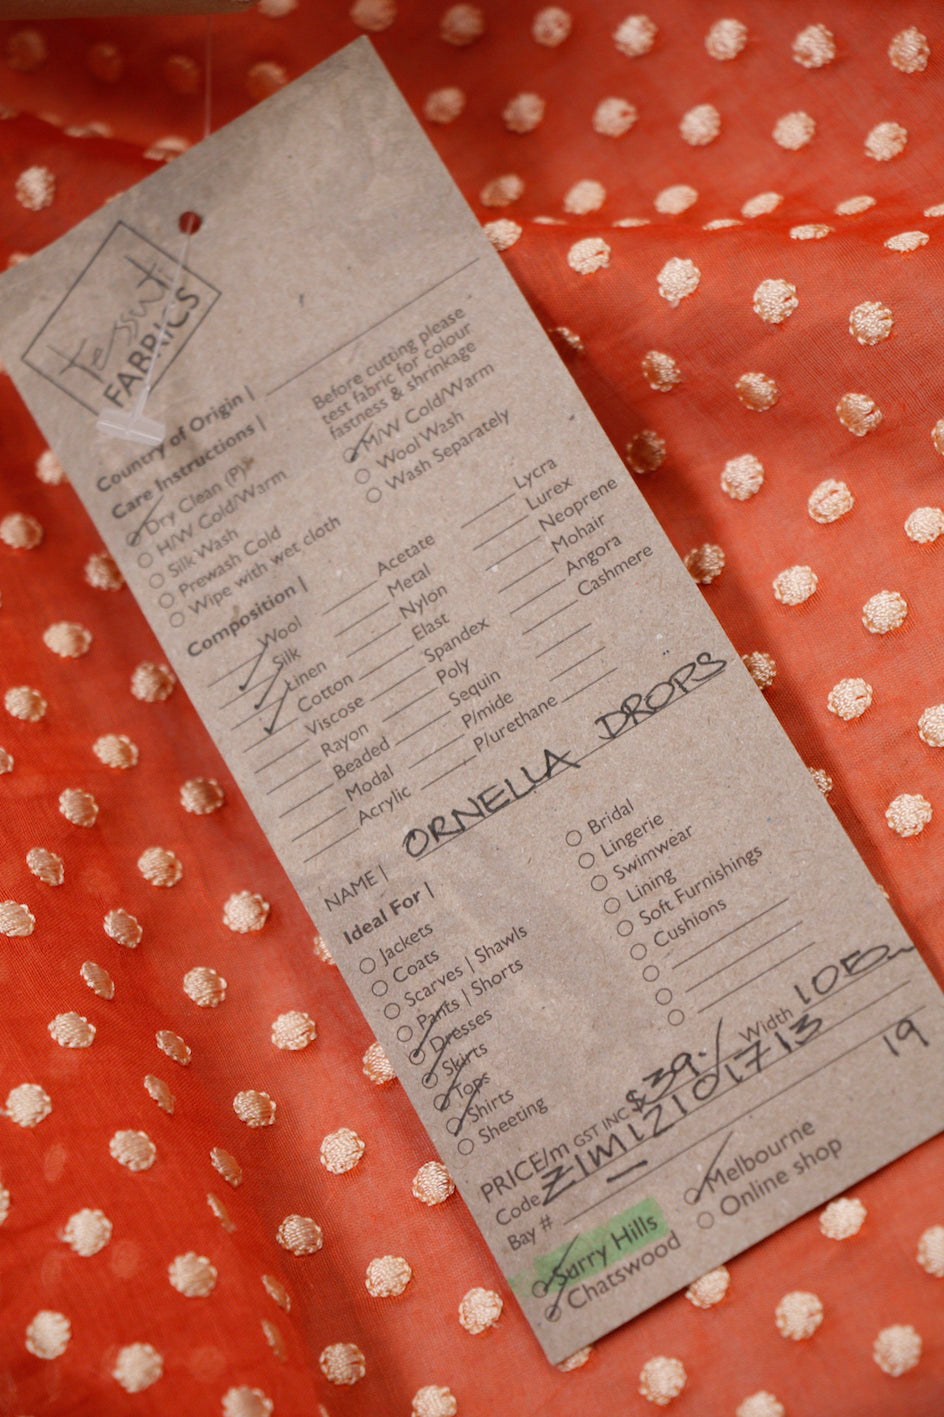 tessuti
FABRICS
Country of Origin |
Before cutting please
test fabric for colour
fastness & shrinkage
Care Instructions |
Dry Clean (P)
H/W Cold/Warm
Silk Wash
Prewash Cold
Wipe with wet cloth
M/W Cold/Warm
Wool Wash
Wash Separately
Composition |
Wool
Silk
Linen
Cotton
Viscose
Rayon
Beaded
Modal
Acrylic
Acetate
Metal
Nylon
Elast
Spandex
Poly
Sequin
P/mide
P/urethane
Lycra
Lurex
Neoprene
Mohair
Angora
Cashmere
NAME | ORNELLA DROPS
Ideal For |
Jackets
Coats
Scarves | Shawls
Pants | Shorts
Dresses
Skirts
Tops
Shirts
Sheeting
Bridal
Lingerie
Swimwear
Lining
Soft Furnishings
Cushions
PRICE/m GST INC $39.- Width
Code
Bay # 19
Surry Hills
Chatswood
Melbourne
Online shop